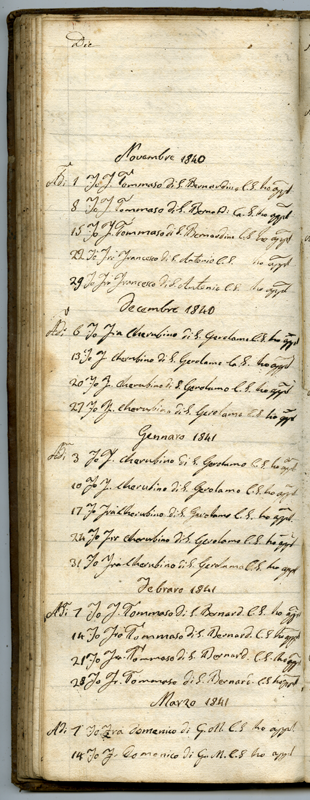 Dic
Novembre 1840
Adi 1 Io F. Tommaso di S. Bernardino C. S. ho appl
8 Io F. Tommaso di S. Bernard. C. S. ho appl
15 Io F. Tommaso di S. Bernardino C. S. ho appl
22 Io Frà Francesco di S. Antonio C. S. ho appl
29 Io Frà Francesco di S. Antonio C. S. ho appl
Decembre 1840
Adi 6 Io Frà Cherubino di S. Gerolamo C. S. ho appl
13 Io F. Cherubino di S. Gerolamo C. S. ho appl
20 Io F. Cherubino di S. Gerolamo C. S. ho appl
27 Io F. Cherubino di S. Gerolamo C. S. ho appl
Gennaro 1841
Adi 3 Io F. Cherubino di S. Gerolamo C. S. ho appl
10 Io F. Cherubino di S. Gerolamo C. S. ho appl
17 Io Frà Cherubino di S. Gerolamo C. S. ho appl
24 Io Frà Cherubino di S. Gerolamo C. S. ho appl
31 Io Frà Cherubino di S. Gerolamo C. S. ho appl
Febraro 1841
Adi 7 Io F. Tommaso di S. Bernard. C. S. ho appl
14 Io Frà Tommaso di S. Bernard. C. S. ho appl
21 Io Fr. Tommaso di S. Bernard. C. S. ho appl
28 Io Fr. Tommaso di S. Bernard. C. S. ho appl
Marzo 1841
Adi 7 Io Fra Domenico di G. M. C. S. ho appl
14 Io F. Domenico di G. M. C. S. ho appl